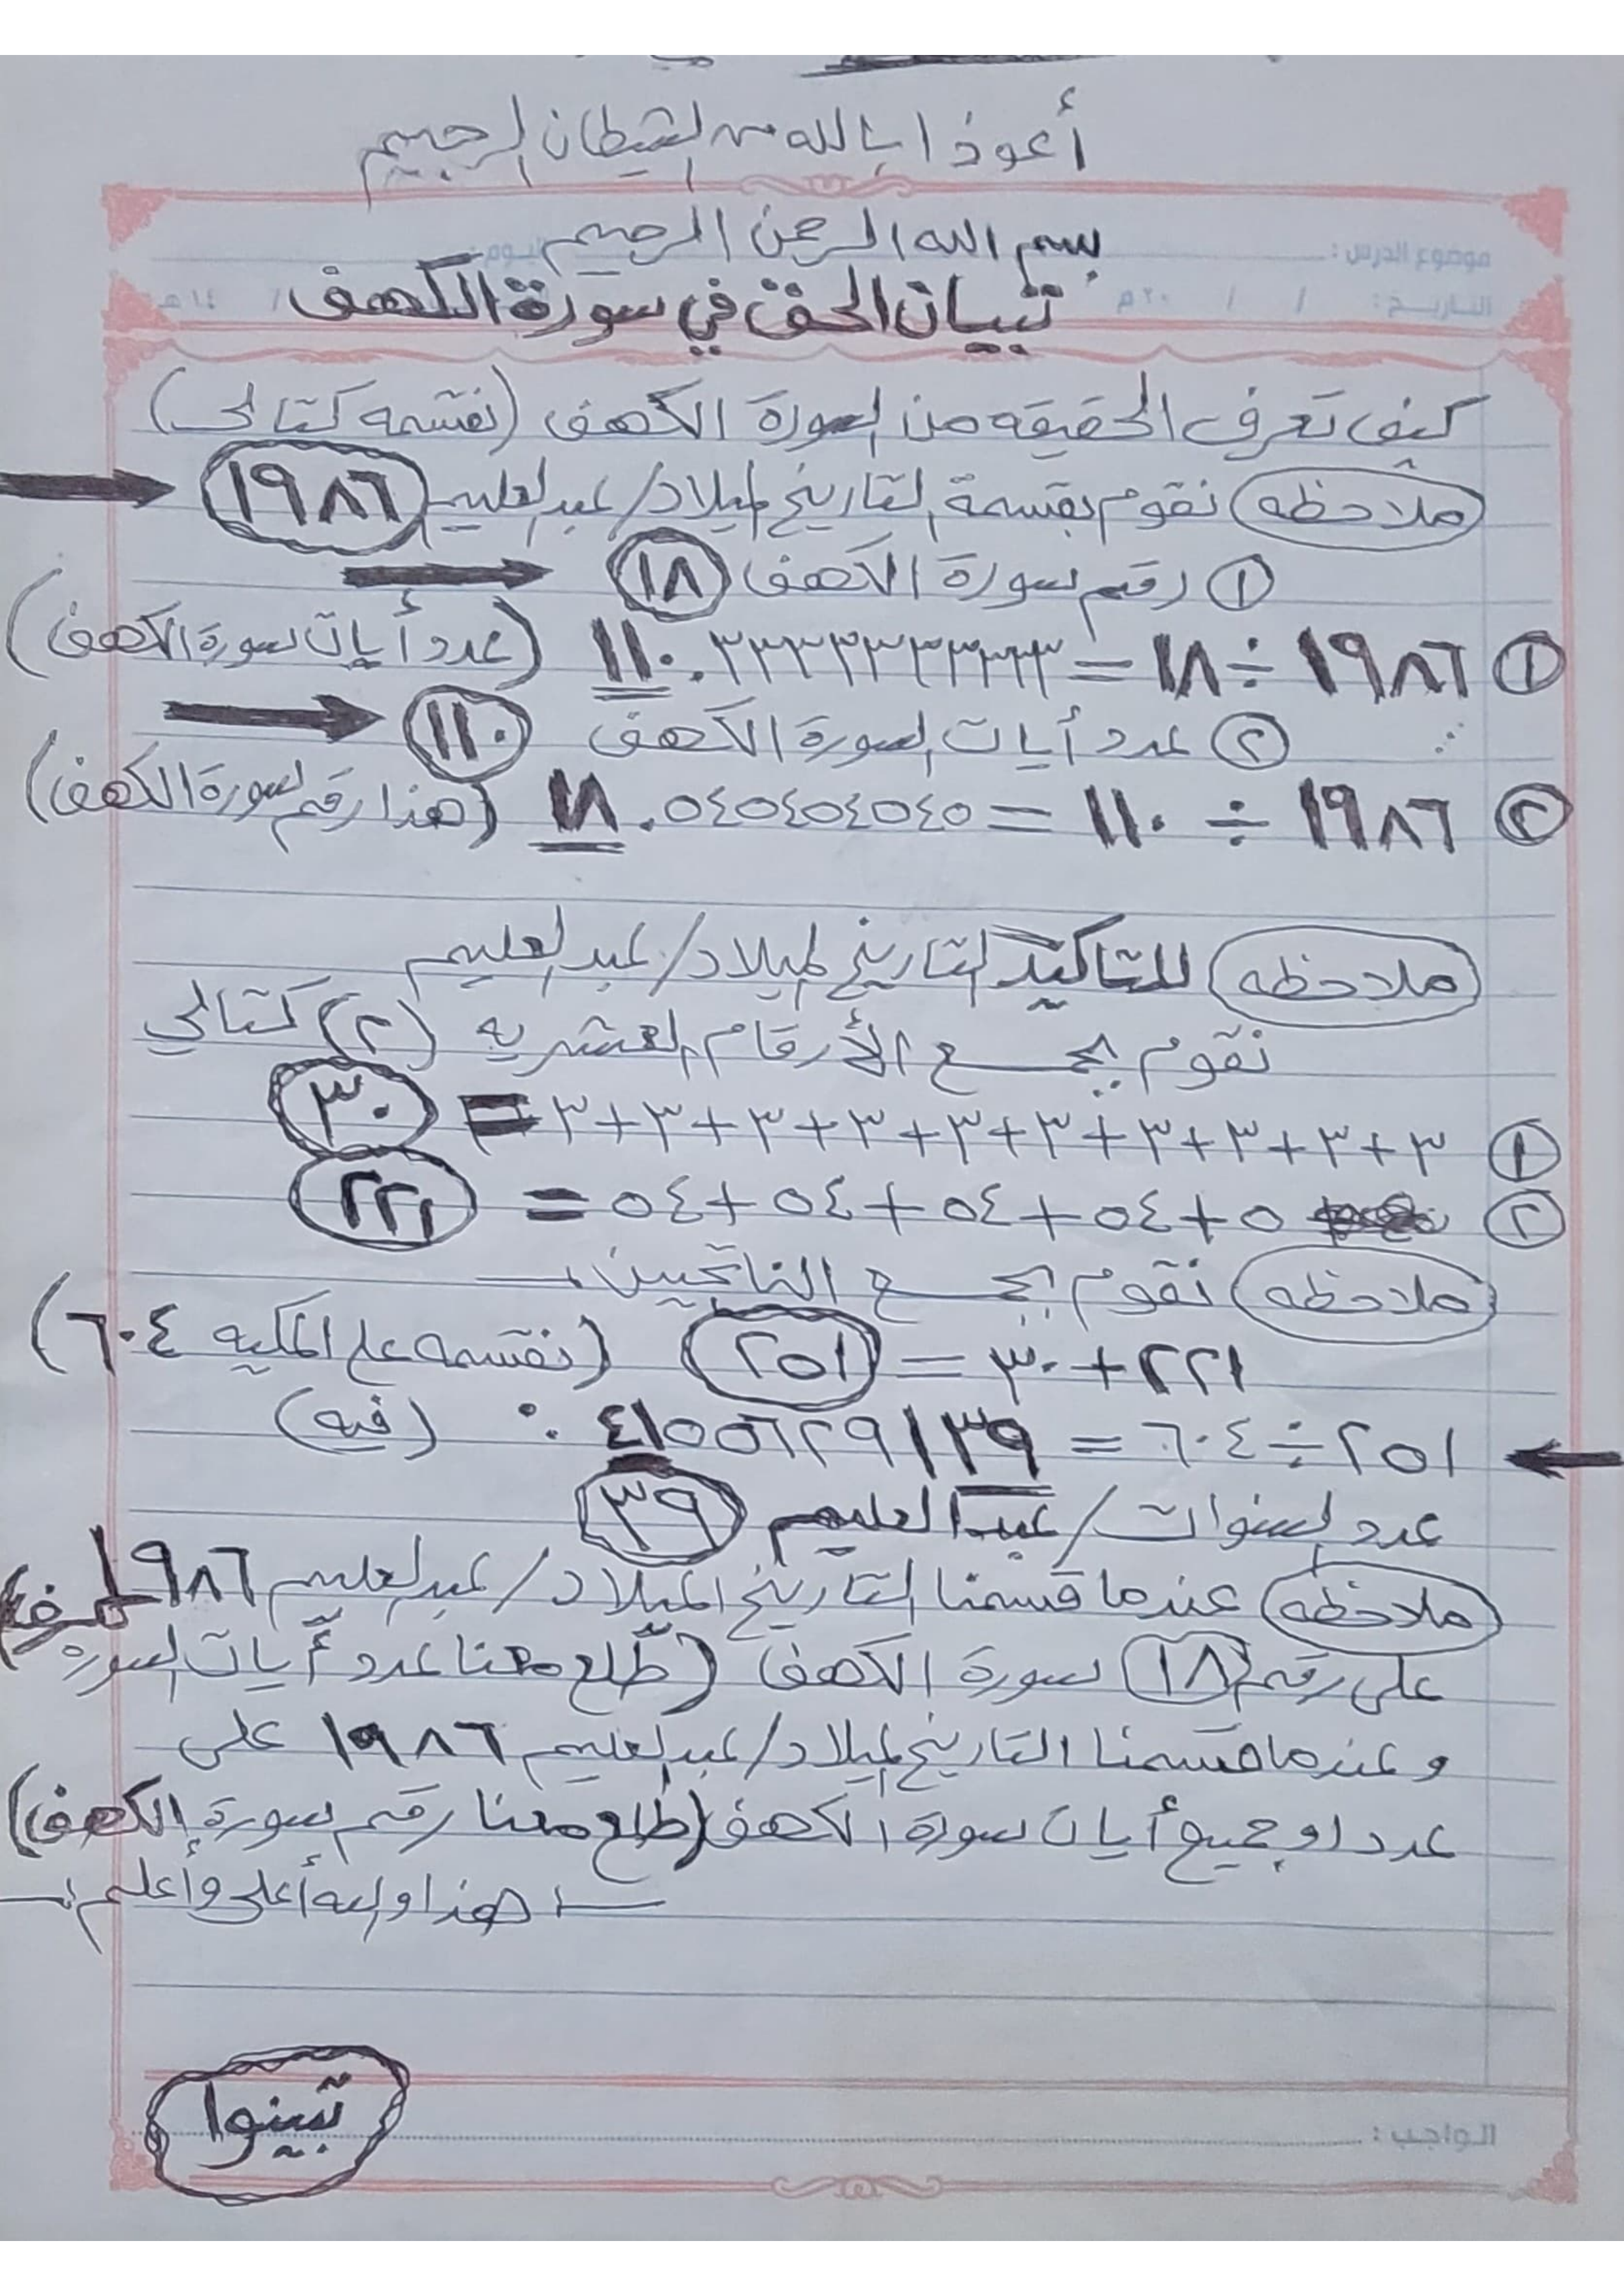 أعوذ ا بالله من الشيطان الرجيم
بسم الله الرحمن الرحيم
موضوع الدرس : اليوم :
التاريخ : / / ٢٠م / ١٤هـ
تبيان الحق في سورة الكهف
كيف تعرف الحقيقه من سورة الكهف (نقسمه كتالي)
ملاحظه نقوم بقسمة التاريخ لميلاد/عبدالعليم ١٩٨٦
١ رقم سورة الكهف ١٨
١ ١٩٨٦ ÷ ١٨ = ١١٠.٣٣٣٣٣٣٣٣٣٣ (عدد أيات سورة الكهف)
٢ عدد أيات سورة الكهف ١١٠
٢ ١٩٨٦ ÷ ١١٠ = ١٨.٠٥٤٠٥٤٠٥٤٠٥ (هذا رقم سورة الكهف)
ملاحظه للتاكيد التاريخ لميلاد/عبدالعليم
نقوم بجمع الأرقام العشريه (٢) كتالي
١ ٣+٣+٣+٣+٣+٣+٣+٣+٣+٣ = ٣٠
٢ ٥+٥٤+٥٤+٥٤+٥٤ = ٢٢١
ملاحظه نقوم بجمع الناتجين
٢٢١+٣٠ = ٢٥١ (نقسمه على المكيه ٦٠٤)
٢٥١ ÷ ٦٠٤ = ٤١٥٥٦٢٩١٣٩ . (فيه)
عدد سنوات/عبدالعليم ٣٩
ملاحظه عندما قسمنا التاريخ الميلاد/عبدالعليم ١٩٨٦
على رقم ١٨ سورة الكهف (طلع معنا عدد أيات السوره
وعندما قسمنا التاريخ لميلاد/عبدالعليم ١٩٨٦ على
عدد او جميع أيات سورة الكهف (طلع معنا رقم سورة الكهف)
هذا والله أعلى وأعلم
تبينوا
الواجب :